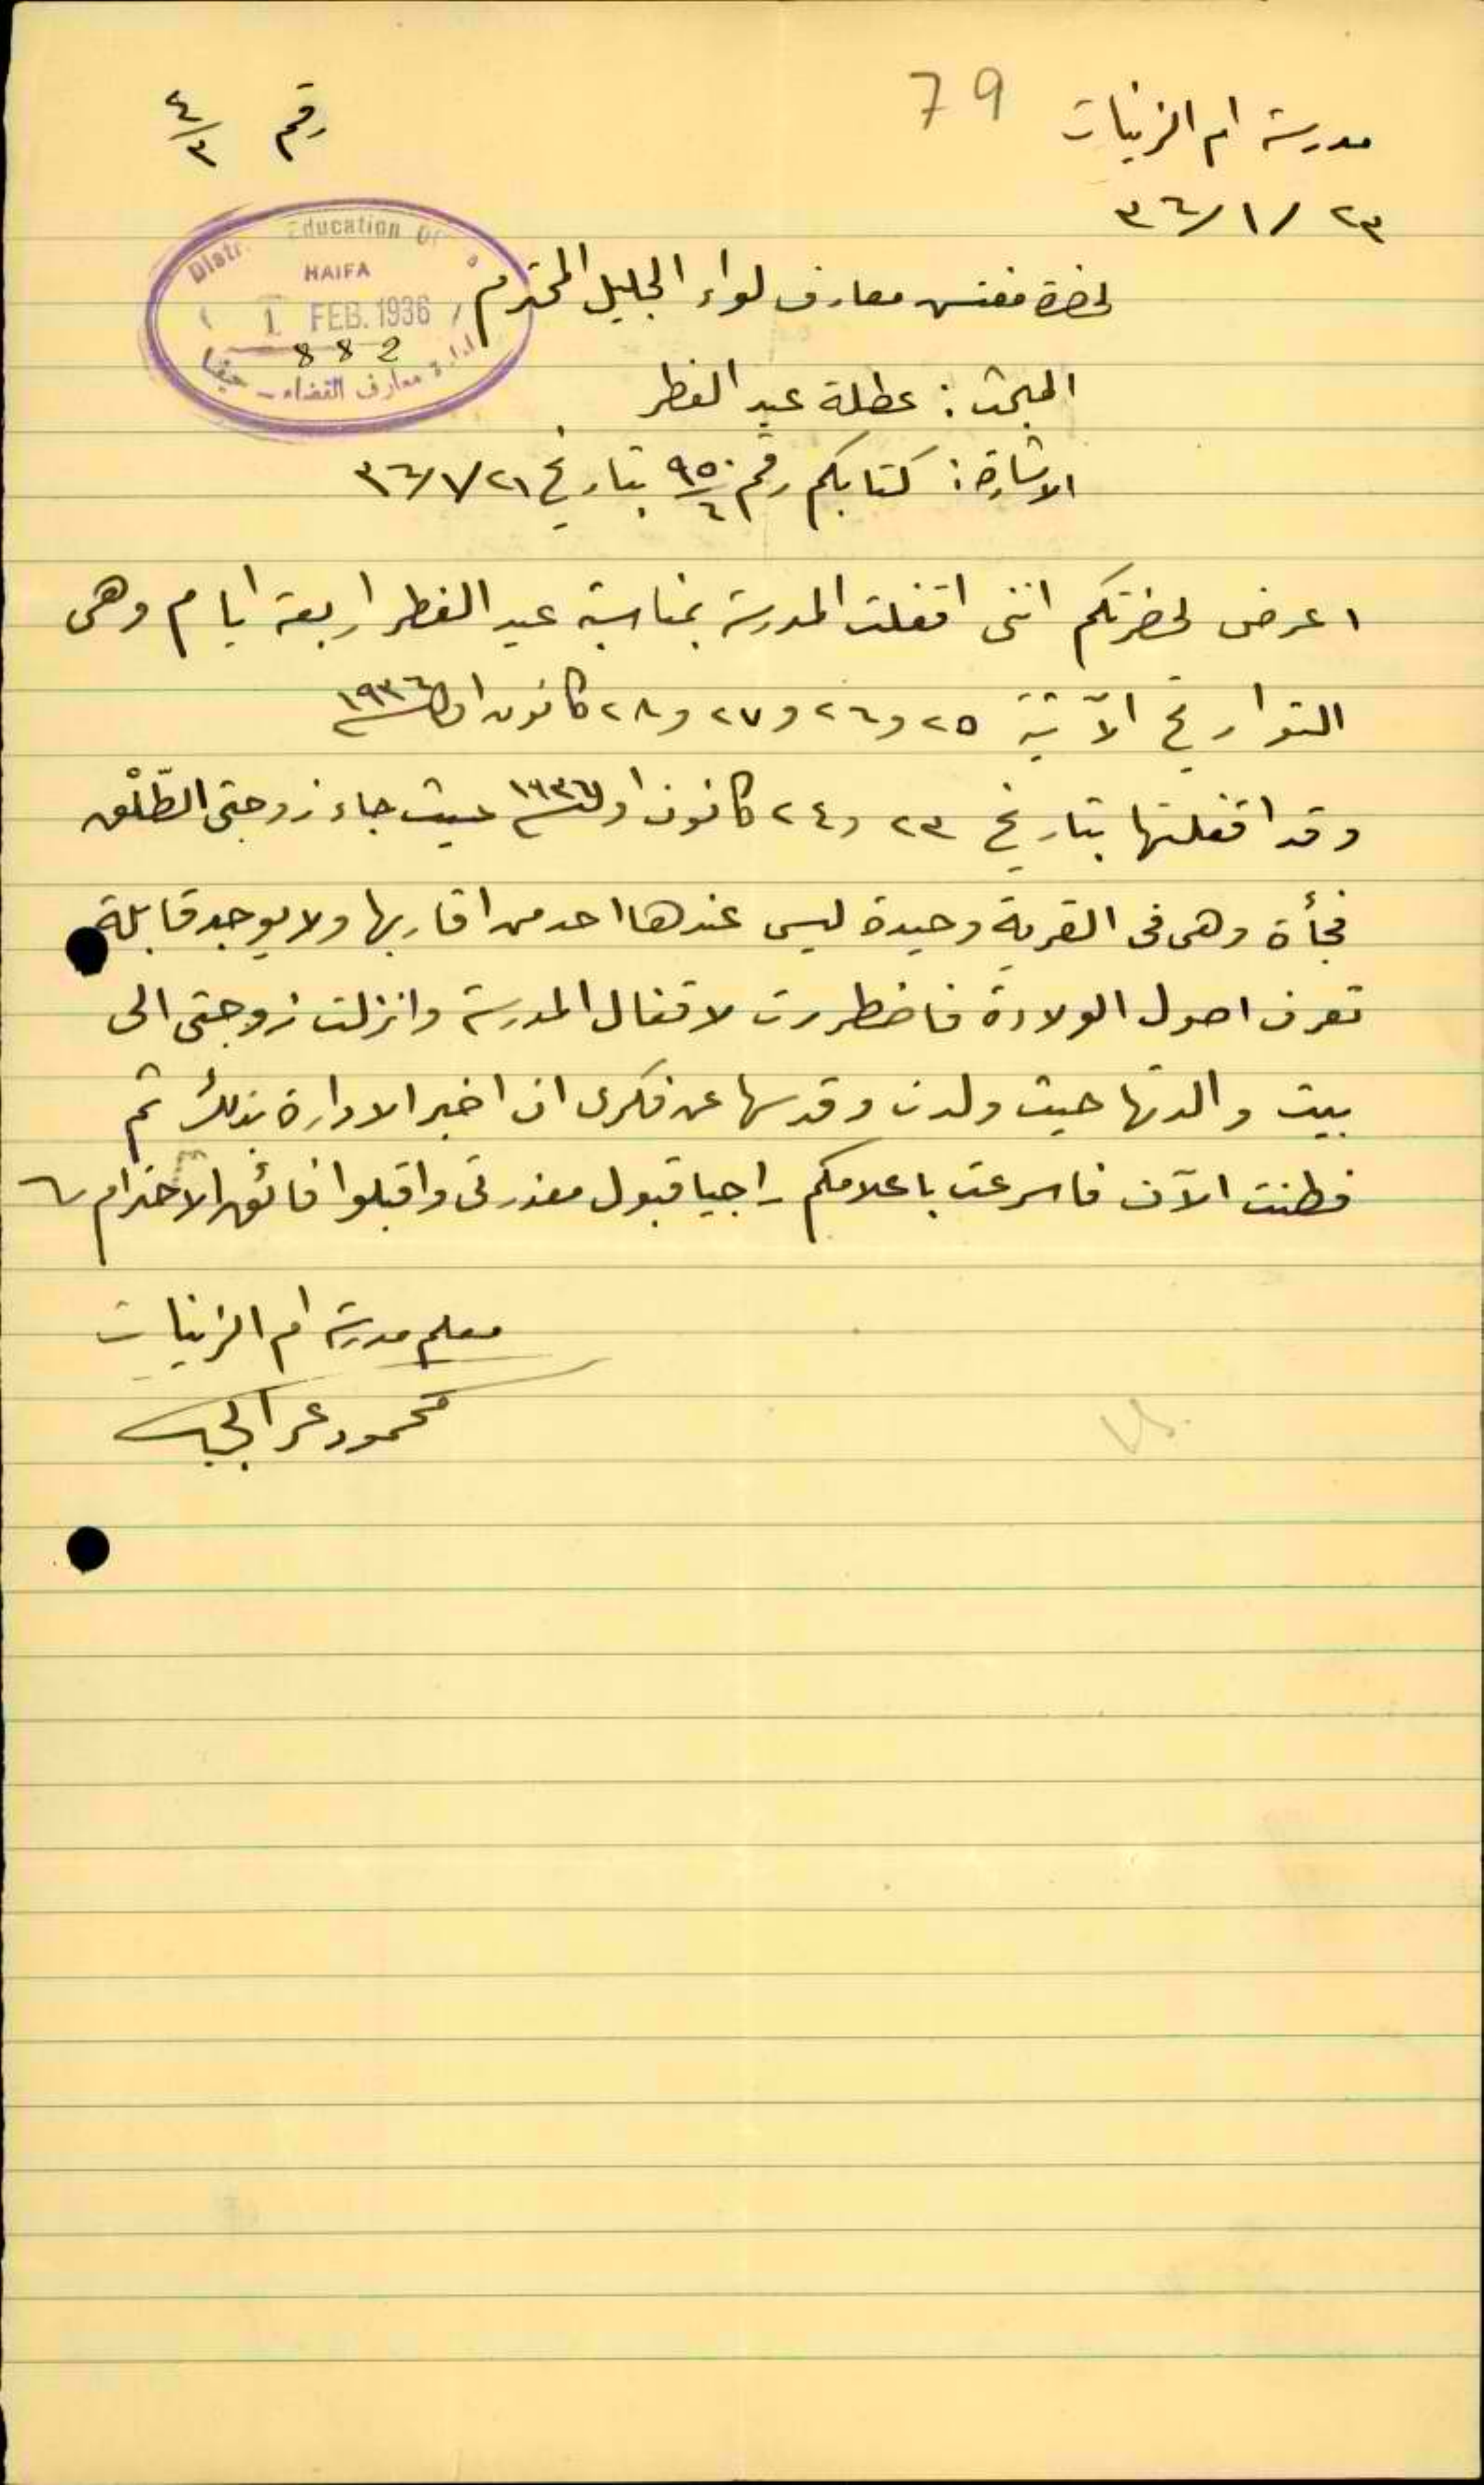 79
مدرسة ام الزينات
رقم ٤/٣
٢٣ /١/ ٣٦
Distr. Education Of
HAIFA
1 FEB. 1936
882
ادارة معارف القضاء – حيفا
لحضرة مفتش معارف لواء الجليل المحترم
المبحث : عطلة عيد الفطر
الاشارة : كتابكم رقم ٩٥٠/٤ بتاريخ ٣٦/١/٢١
اعرض لحضرتكم انني اقفلت المدرسة بمناسبة عيد الفطر اربعة ايام وهى
التواريخ الآتية ٢٥ و٢٦ و٢٧ و٢٨ كانون اول ١٩٣٦
وقد اقفلتها بتاريخ ٢٣ و٢٤ كانون اول ١٩٣٦ حيث جاء زوجتى الطّلْق
فجأة وهى فى القرية وحيدة ليس عندها احد من اقاربها ولا يوجد قابلة
تعرف اصول الولادة فاضطررت لاقفال المدرسة وانزلت زوجتى الى
بيت والدتها حيث ولدت وقد سها عن فكرى ان اخبر الادارة بذلك ثم
فطنت الآن فاسرعت باعلامكم راجيا قبول معذرتى واقبلوا فائق الاحترام
معلم مدرسة ام الزينات
محمود عمر